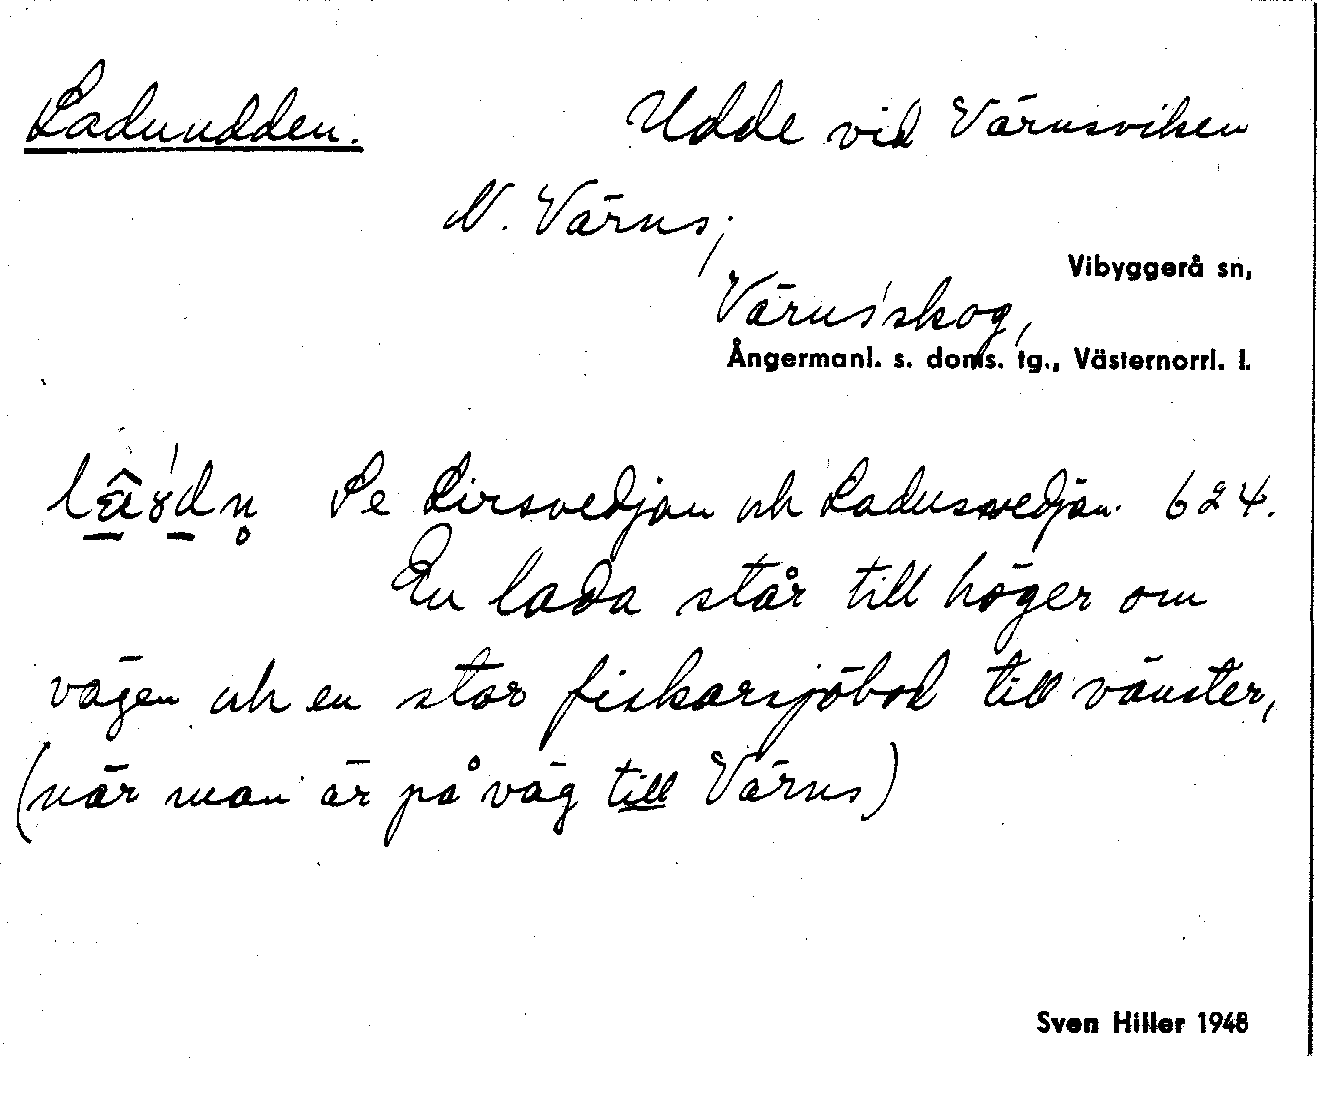 Laduudden. Udde vid Värnsviken
N. Värns;
Vibyggerå sn,
Värns'skog,
Ångermanl. s. doms. tg., Västernorrl. l.
Se Lirsvedjan och Ladusvedjan. 624.
En lada står till höger om
vägen och en stor fiskarsjöbod till vänster,
(när man är på väg till Värns)
Sven Hiller 1948